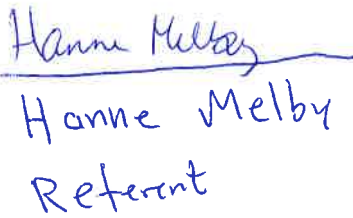 Hanne Melby
Hanne Melby
Referent